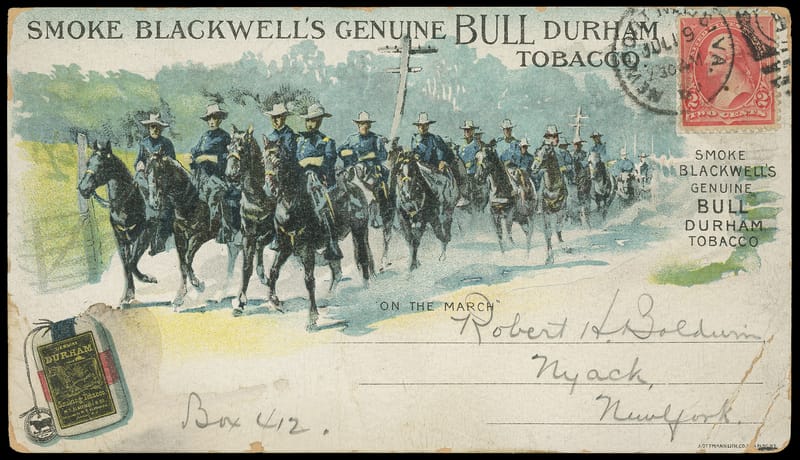 SMOKE BLACKWELL'S GENUINE BULL DURHAM
TOBACCO
JUL 19
VA.
TWO CENTS
SMOKE
BLACKWELL'S
GENUINE
BULL
DURHAM
TOBACCO
"ON THE MARCH"
Robert H. Baldwin,
Nyack,
New York.
Box 412.
GENUINE
DURHAM
Smoking Tobacco